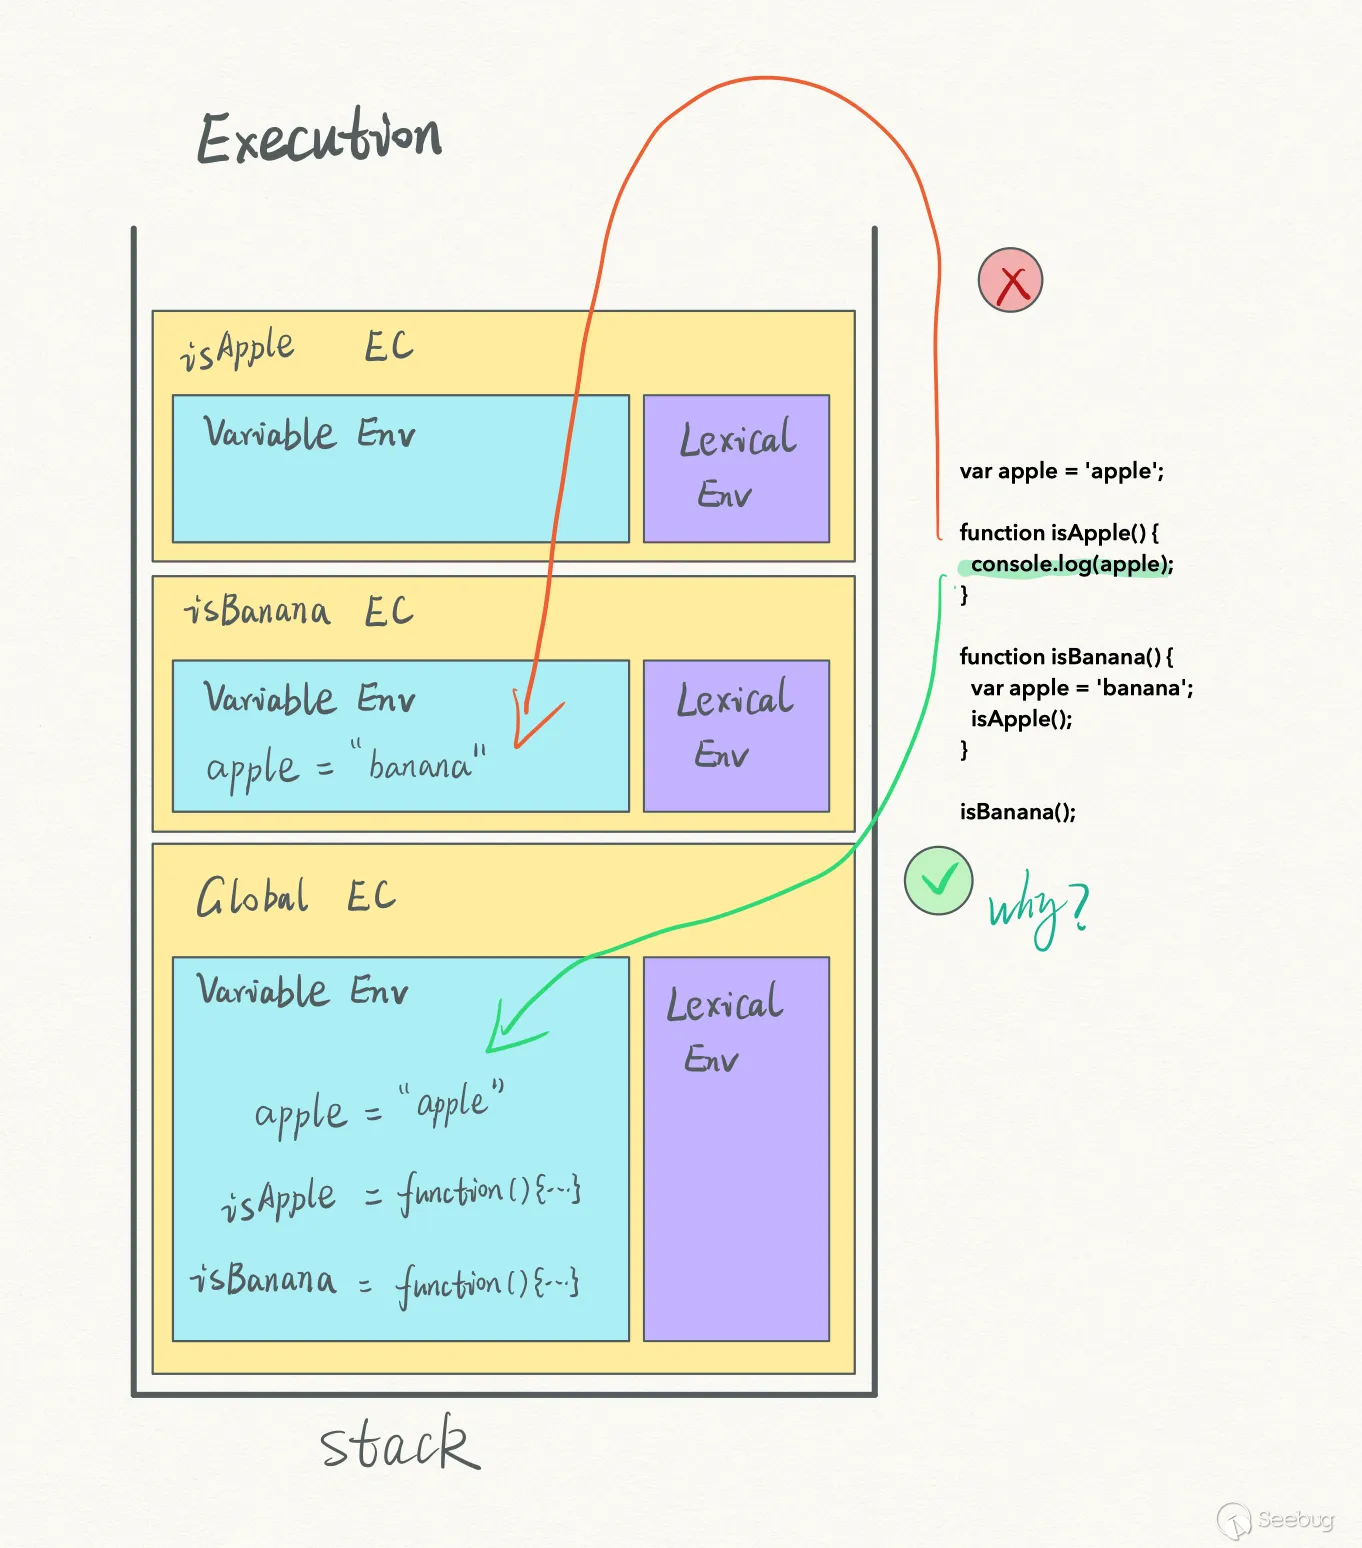 Execution
isApple EC
Variable Env
Lexical
Env
isBanana EC
Variable Env
apple = "banana"
Lexical
Env
Global EC
Variable Env
apple = "apple"
isApple = function(){...}
isBanana = function(){...}
Lexical
Env
stack
X
var apple = 'apple';
function isApple() {
console.log(apple);
}
function isBanana() {
var apple = 'banana';
isApple();
}
isBanana();
why?
Seebug